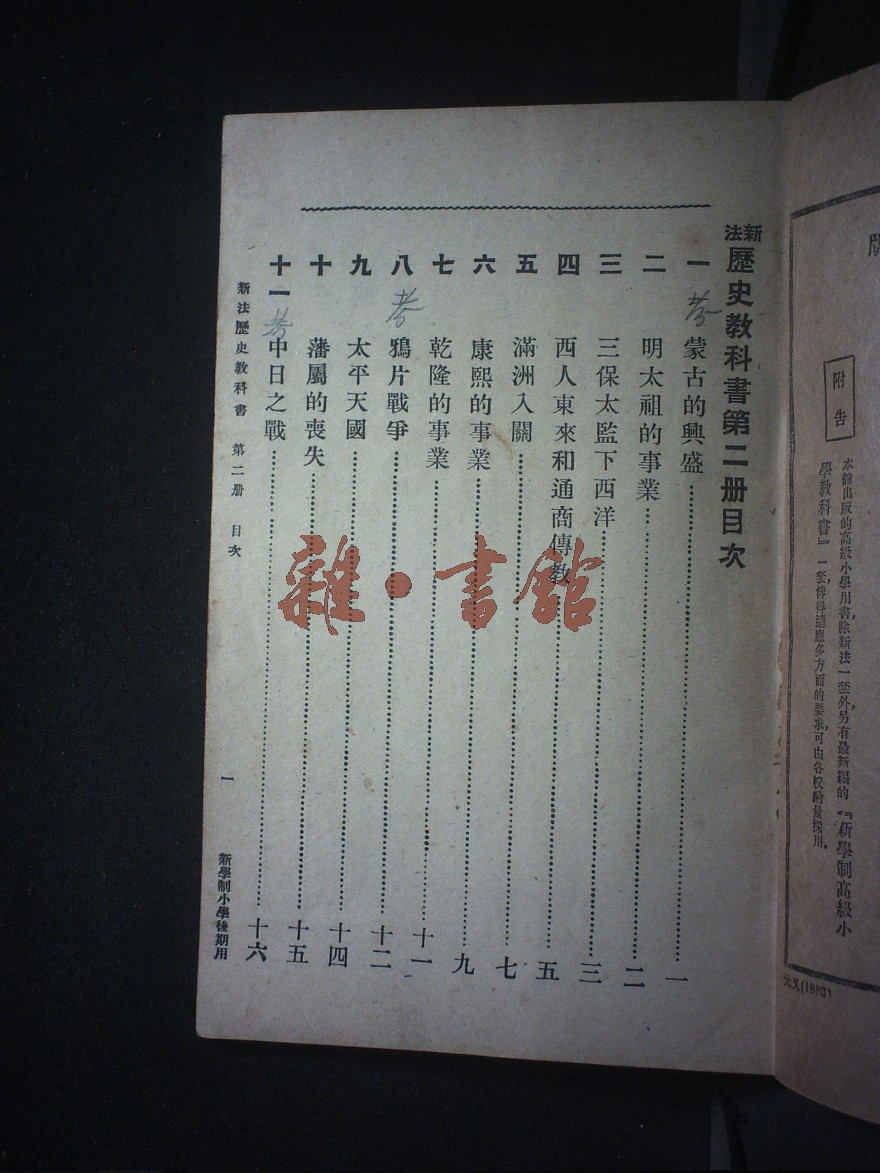 新法歷史教科書第二册目次
一 蒙古的興盛 一
二 明太祖的事業 二
三 三保太監下西洋 三
四 西人東來和通商傳教 五
五 滿洲入關 七
六 康熙的事業 九
七 乾隆的事業 十一
八 鴉片戰爭 十二
九 太平天國 十四
十 藩屬的喪失 十五
十一 中日之戰 十六
新法歷史教科書 第二册 目次 一 新學制小學後期用
附告
本館出版的高級小學用書除新法一套外另有最新編的『新學制高級小
學教科書』一套,俾得適應多方面的要求,可由各校酌量採用,
元又(1893)
雜·書館